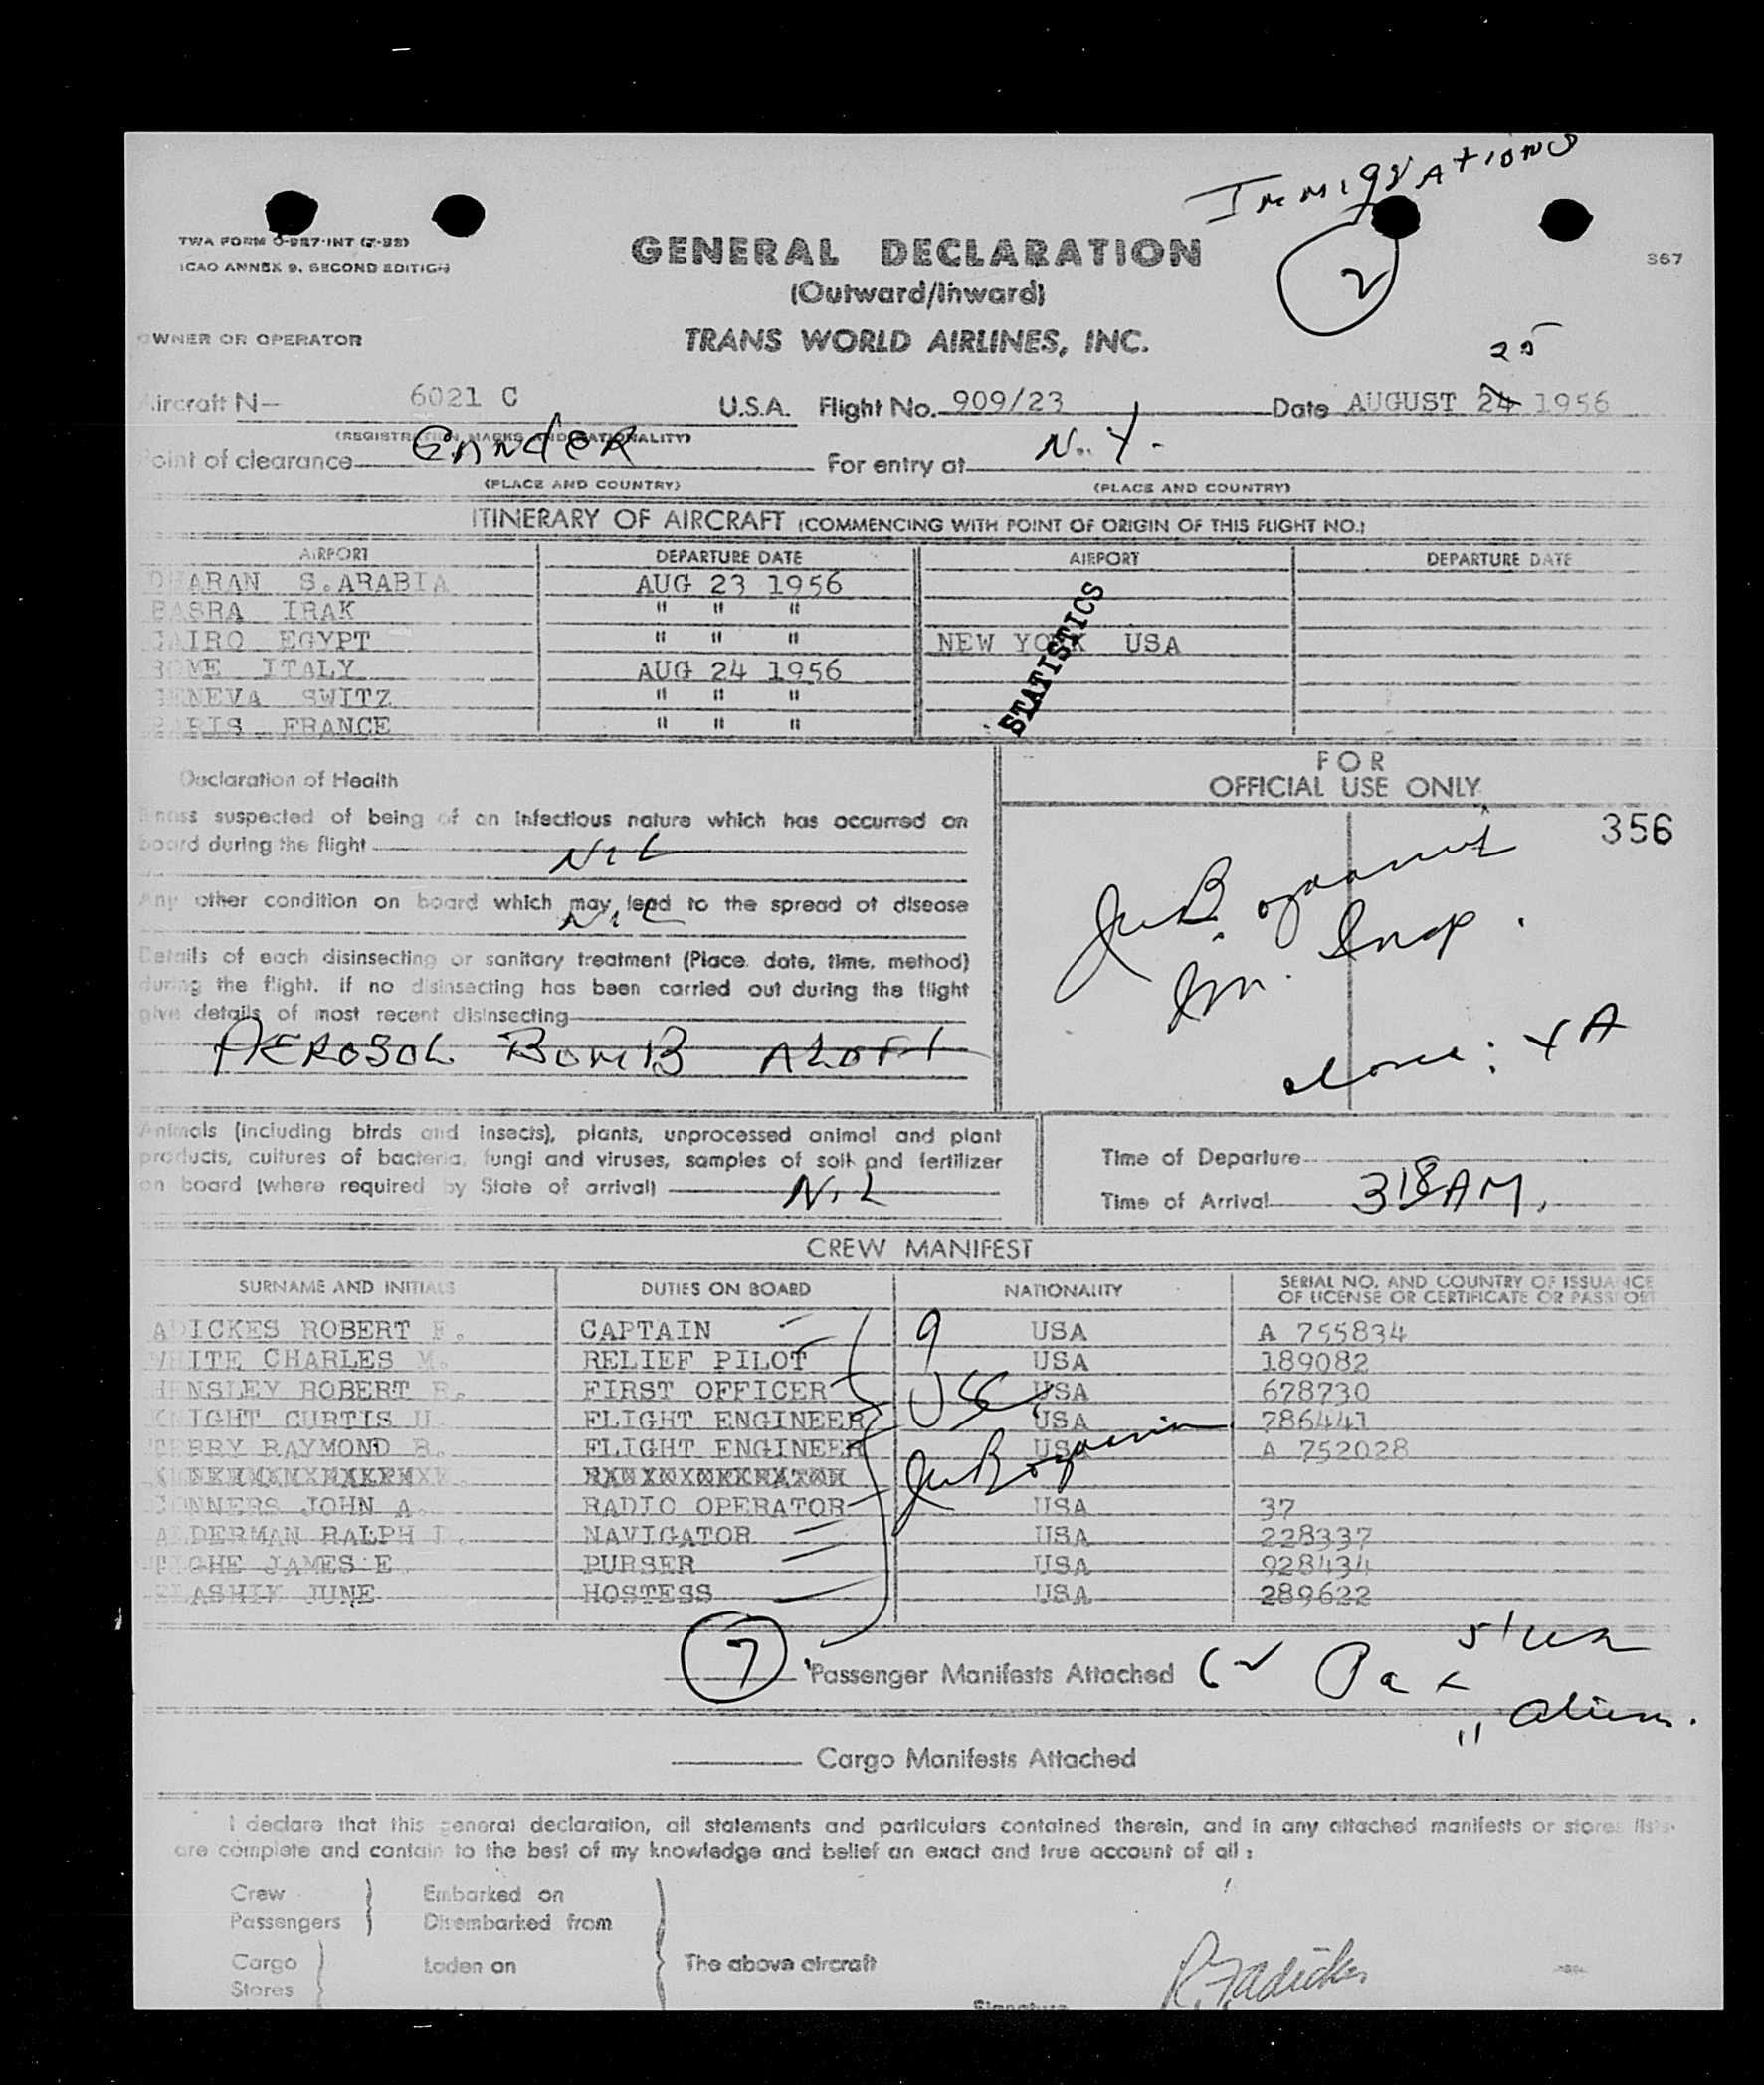 Immigrations
TWA FORM O-987-INT (7-55)
ICAO ANNEX 9, SECOND EDITION
GENERAL DECLARATION
2
S67
(Outward/Inward)
OWNER OR OPERATOR
TRANS WORLD AIRLINES, INC.
25
Aircraft N— 6021 C U.S.A. Flight No. 909/23 Date AUGUST 24 1956
(REGISTRATION MARKS AND NATIONALITY)
Point of clearance GANDER For entry at N.Y.
(PLACE AND COUNTRY) (PLACE AND COUNTRY)
ITINERARY OF AIRCRAFT (COMMENCING WITH POINT OF ORIGIN OF THIS FLIGHT NO.)
AIRPORT DEPARTURE DATE AIRPORT DEPARTURE DATE
DHARAN S.ARABIA AUG 23 1956
BASRA IRAK " " "
CAIRO EGYPT " " " NEW YORK USA
ROME ITALY AUG 24 1956
GENEVA SWITZ " " "
PARIS FRANCE " " "
STATISTICS
Declaration of Health
FOR
OFFICIAL USE ONLY
Illness suspected of being of an infectious nature which has occurred on
board during the flight NIL
356
Any other condition on board which may lead to the spread of disease
NIL
Details of each disinsecting or sanitary treatment (Place, date, time, method)
during the flight. If no disinsecting has been carried out during the flight
give details of most recent disinsecting
AEROSOL BOMB ALOFT
Im. Insp.
Animals (including birds and insects), plants, unprocessed animal and plant
products, cultures of bacteria, fungi and viruses, samples of soil and fertilizer
on board (where required by State of arrival) NIL
Time of Departure
Time of Arrival 318 AM.
CREW MANIFEST
SURNAME AND INITIALS DUTIES ON BOARD NATIONALITY SERIAL NO. AND COUNTRY OF ISSUANCE
OF LICENSE OR CERTIFICATE OR PASSPORT
ADICKES ROBERT F. CAPTAIN 9 USA A 755834
WHITE CHARLES M. RELIEF PILOT USA 189082
HENSLEY ROBERT R. FIRST OFFICER USC USA 678730
KNIGHT CURTIS U. FLIGHT ENGINEER USA 786441
TERRY RAYMOND B. FLIGHT ENGINEER USA A 752028
CONNERS JOHN A. RADIO OPERATOR USA 37
ALDERMAN RALPH L. NAVIGATOR USA 228337
TIGHE JAMES E. PURSER USA 928434
JUNE HOSTESS USA 289622
7 Passenger Manifests Attached 62 Pax 51 USC
11 Aliens.
Cargo Manifests Attached
I declare that this general declaration, all statements and particulars contained therein, and in any attached manifests or stores lists
are complete and contain to the best of my knowledge and belief an exact and true account of all :
Crew Embarked on
Passengers Disembarked from
Cargo Laden on The above aircraft
Stores
Signature R.F. Adickes